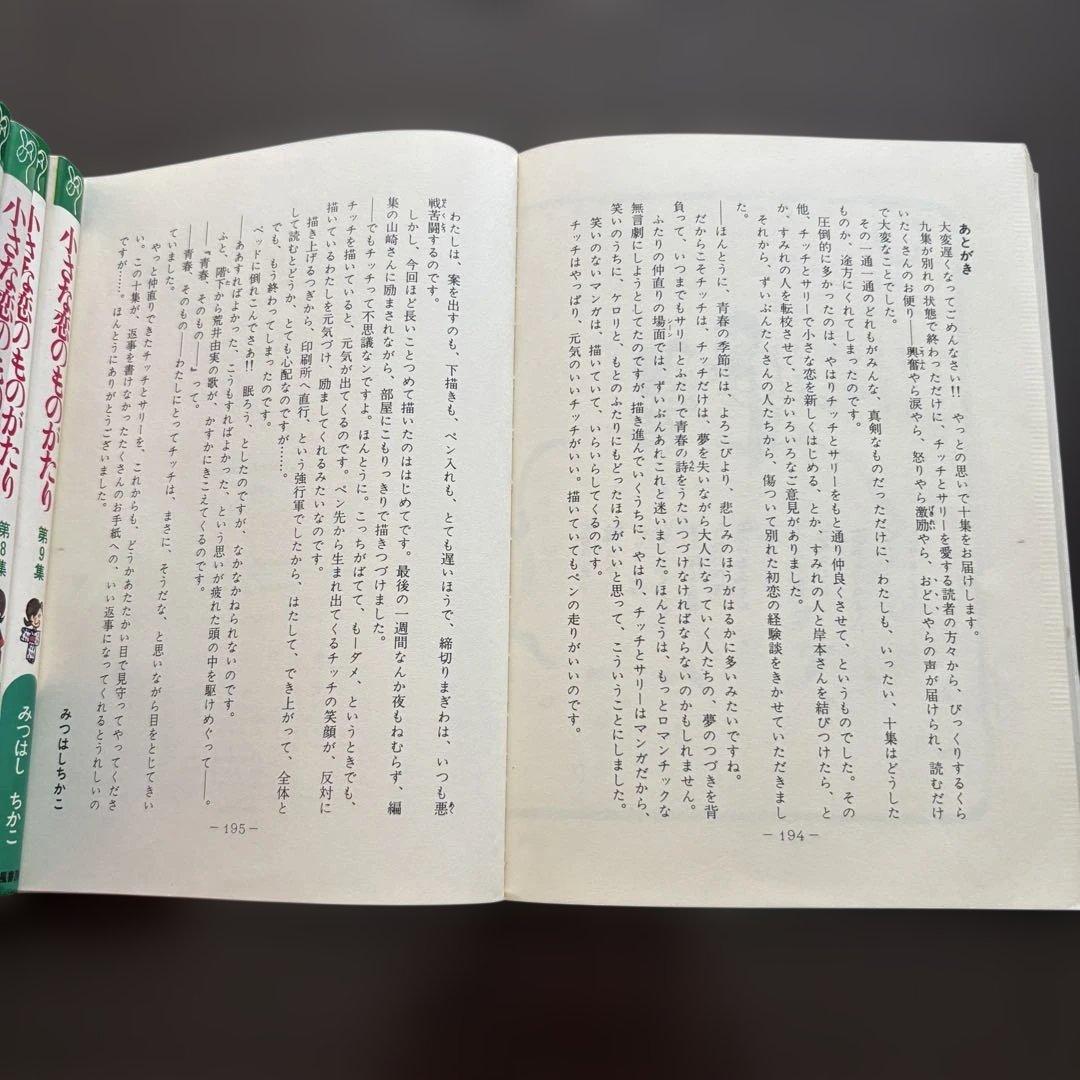 あとがき
大変遅くなってごめんなさい!!　やっとの思いで十集をお届けします。
九集が別れの状態で終わっただけに、チッチとサリーを愛する読者の方々から、びっくりするくら
いたくさんのお便り――興奮やら涙やら、怒りやら激励やら、おどしやらの声が届けられ、読むだけ
で大変なことでした。
その一通一通のどれもがみんな、真剣なものだっただけに、わたしも、いったい、十集はどうした
ものか、途方にくれてしまったのです。
圧倒的に多かったのは、やはりチッチとサリーをもと通り仲良くさせて、というものでした。その
他、チッチとサリーで小さな恋を新しくはじめる、とか、すみれの人と岸本さんを結びつけたら、と
か、すみれの人を転校させて、とかいろいろなご意見がありました。
それから、ずいぶんたくさんの人たちから、傷ついて別れた初恋の経験談をきかせていただきまし
た。
――ほんとうに、青春の季節には、よろこびより、悲しみのほうがはるかに多いみたいですね。
だからこそチッチは、チッチだけは、夢を失いながら大人になっていく人たちの、夢のつづきを背
負って、いつまでもサリーとふたりで青春の詩をうたいつづけなければならないのかもしれません。
ふたりの仲直りの場面では、ずいぶんあれこれと迷いました。ほんとうは、もっとロマンチックな
無言劇にしようとしてたのですが、描き進んでいくうちに、やはり、チッチとサリーはマンガだから、
笑いのうちに、ケロリと、もとのふたりにもどったほうがいいと思って、こういうことにしました。
笑いのないマンガは、描いていて、いらいらしてくるのです。
チッチはやっぱり、元気のいいチッチがいい。描いていてもペンの走りがいいのです。
―194―
わたしは、案を出すのも、下描きも、ペン入れも、とても遅いほうで、締切りまぎわは、いつも悪
戦苦闘するのです。
しかし、今回ほど長いことつめて描いたのははじめてです。最後の一週間なんか夜もねむらず、編
集の山崎さんに励まされながら、部屋にこもりっきりで描きつづけました。
――でもチッチって不思議なンですよ。ほんとうに。こっちがばてて、もーダメ、というときでも、
チッチを描いていると、元気が出てくるのです。ペン先から生まれ出てくるチッチの笑顔が、反対に
描いているわたしを元気づけ、励ましてくれるみたいなのです。
描き上げるつぎから、印刷所へ直行、という強行軍でしたから、はたして、でき上がって、全体と
して読むとどうか、とても心配なのですが……。
でも、もう終わってしまったのです。
ベッドに倒れこんでさあ!!　眠ろう、としたのですが、なかなかねられないのです。
――ああすればよかった、こうもすればよかった、という思いが疲れた頭の中を駆けめぐって――。
ふと、階下から荒井由実の歌が、かすかにきこえてくるのです。
――『青春、そのもの――』って。
――青春、そのもの――わたしにとってチッチは、まさに、そうだな、と思いながら目をとじてきい
ていました。
やっと仲直りできたチッチとサリーを、これからも、どうかあたたかい目で見守ってやってくださ
い。この十集が、返事を書けなかったたくさんのお手紙への、いい返事になってくれるとうれしいの
ですが……。ほんとうにありがとうございました。
―195―
小さな恋のものがたり
第9集
みつはしちかこ
小さな恋のものがたり
第8集
みつはし ちかこ
小さな恋のものがたり